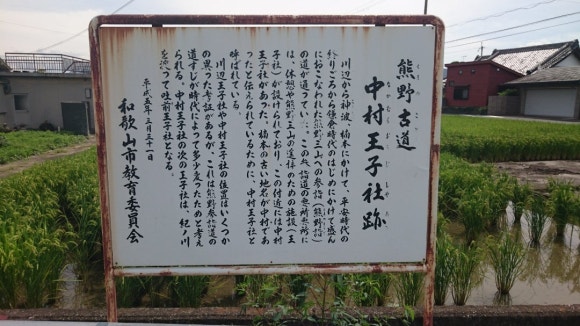 熊野古道
中村王子社跡
川辺から神波、楠本にかけて、平安時代の
終りごろから鎌倉時代のはじめにかけて盛ん
におこなわれた熊野三山への参詣（熊野詣）
の道が通っていて、この参詣道の要所要所に
は、休憩や熊野三山の遥拝のための施設（王
子社）が設けられており、この付近には中村
王子社があった。楠本の古い地名が中村であ
ったと伝えられているために、中村王子社と
呼ばれている
川辺王子社や中村王子社の位置はいくつか
の異った考証があるが、これは熊野参詣道の
道すじが時代によって多少変ったためと考え
られる。中村王子社の次の王子社は、紀ノ川
を渡って吐前王子社となる。
平成五年三月三十一日
和歌山市教育委員会